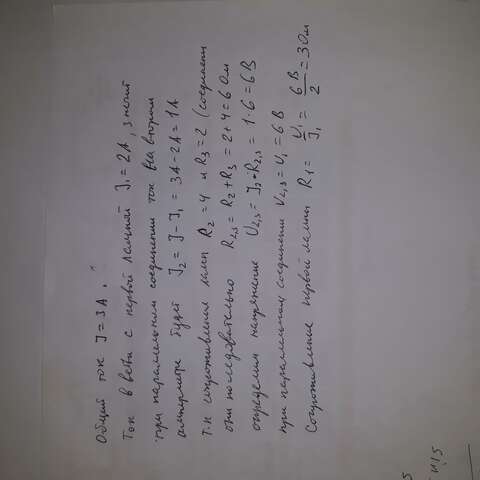 Общий ток J = 3A.
Ток в ветви с первой лампой J₁ = 2A, значит
при параллельном соединении ток на втором
амперметре будет J₂ = J - J₁ = 3A - 2A = 1A
т.к сопротивления ламп R₂ = 4 и R₃ = 2 (соединены
они последовательно R₂,₃ = R₂ + R₃ = 2 + 4 = 6 Ом
определим напряжение U₂,₃ = J₂ • R₂,₃ = 1 · 6 = 6 В
при параллельном соединении U₂,₃ = U₁ = 6 В
Сопротивление первой лампы R₁ = U₁/J₁ = 6 В/2 = 3 Ом